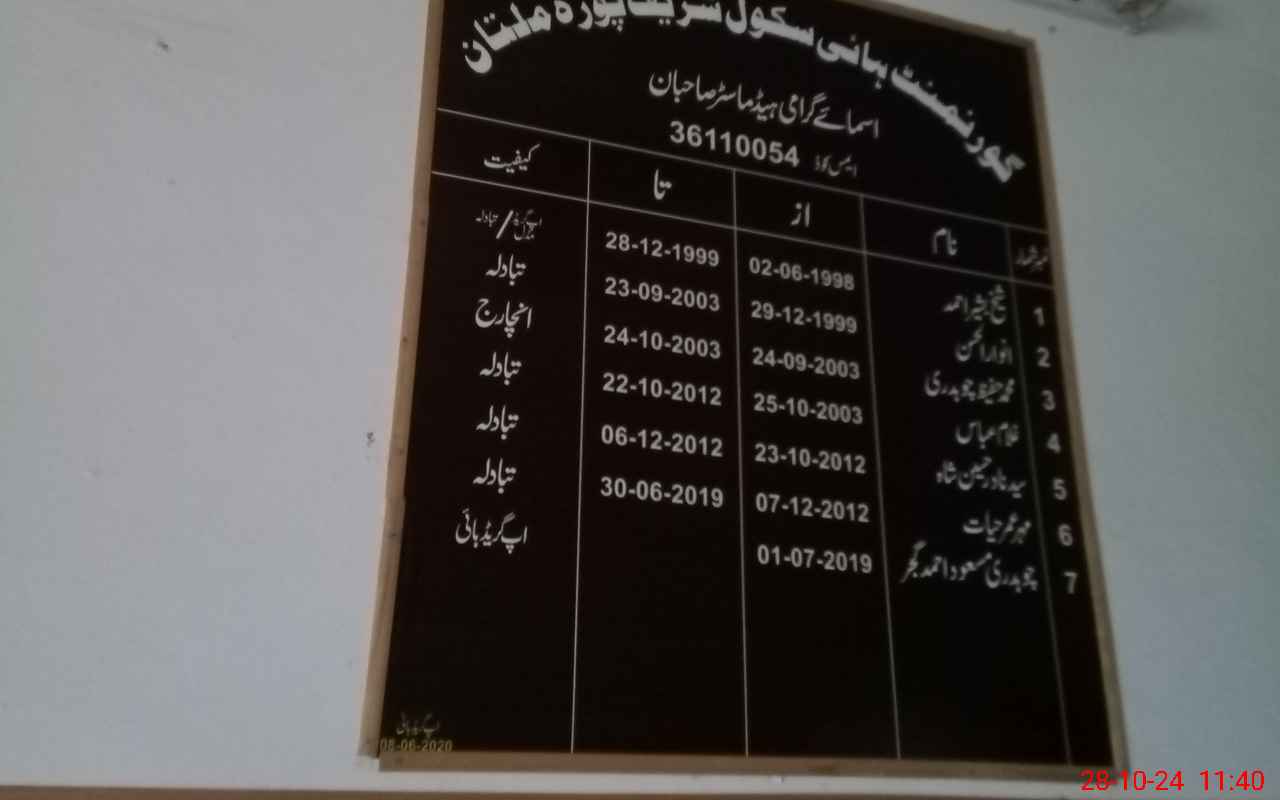 گورنمنٹ ہائی سکول شریف پورہ ملتان
اسمائے گرامی ہیڈ ماسٹر صاحبان
ایمس کوڈ 36110054
نمبر شمار نام از تا کیفیت
1 شیخ بشیر احمد 02-06-1998 28-12-1999 اپ گریڈ / تبادلہ
2 انوار الحسن 29-12-1999 23-09-2003 تبادلہ
3 محمد حفیظ چوہدری 24-09-2003 24-10-2003 انچارج
4 غلام عباس 25-10-2003 22-10-2012 تبادلہ
5 سید نادر حسین شاہ 23-10-2012 06-12-2012 تبادلہ
6 مہر عمر حیات 07-12-2012 30-06-2019 تبادلہ
7 چوہدری مسعود احمد گجر 01-07-2019 اپ گریڈ ہائی
اپ گریڈ ہائی
08-06-2020
28-10-24 11:40